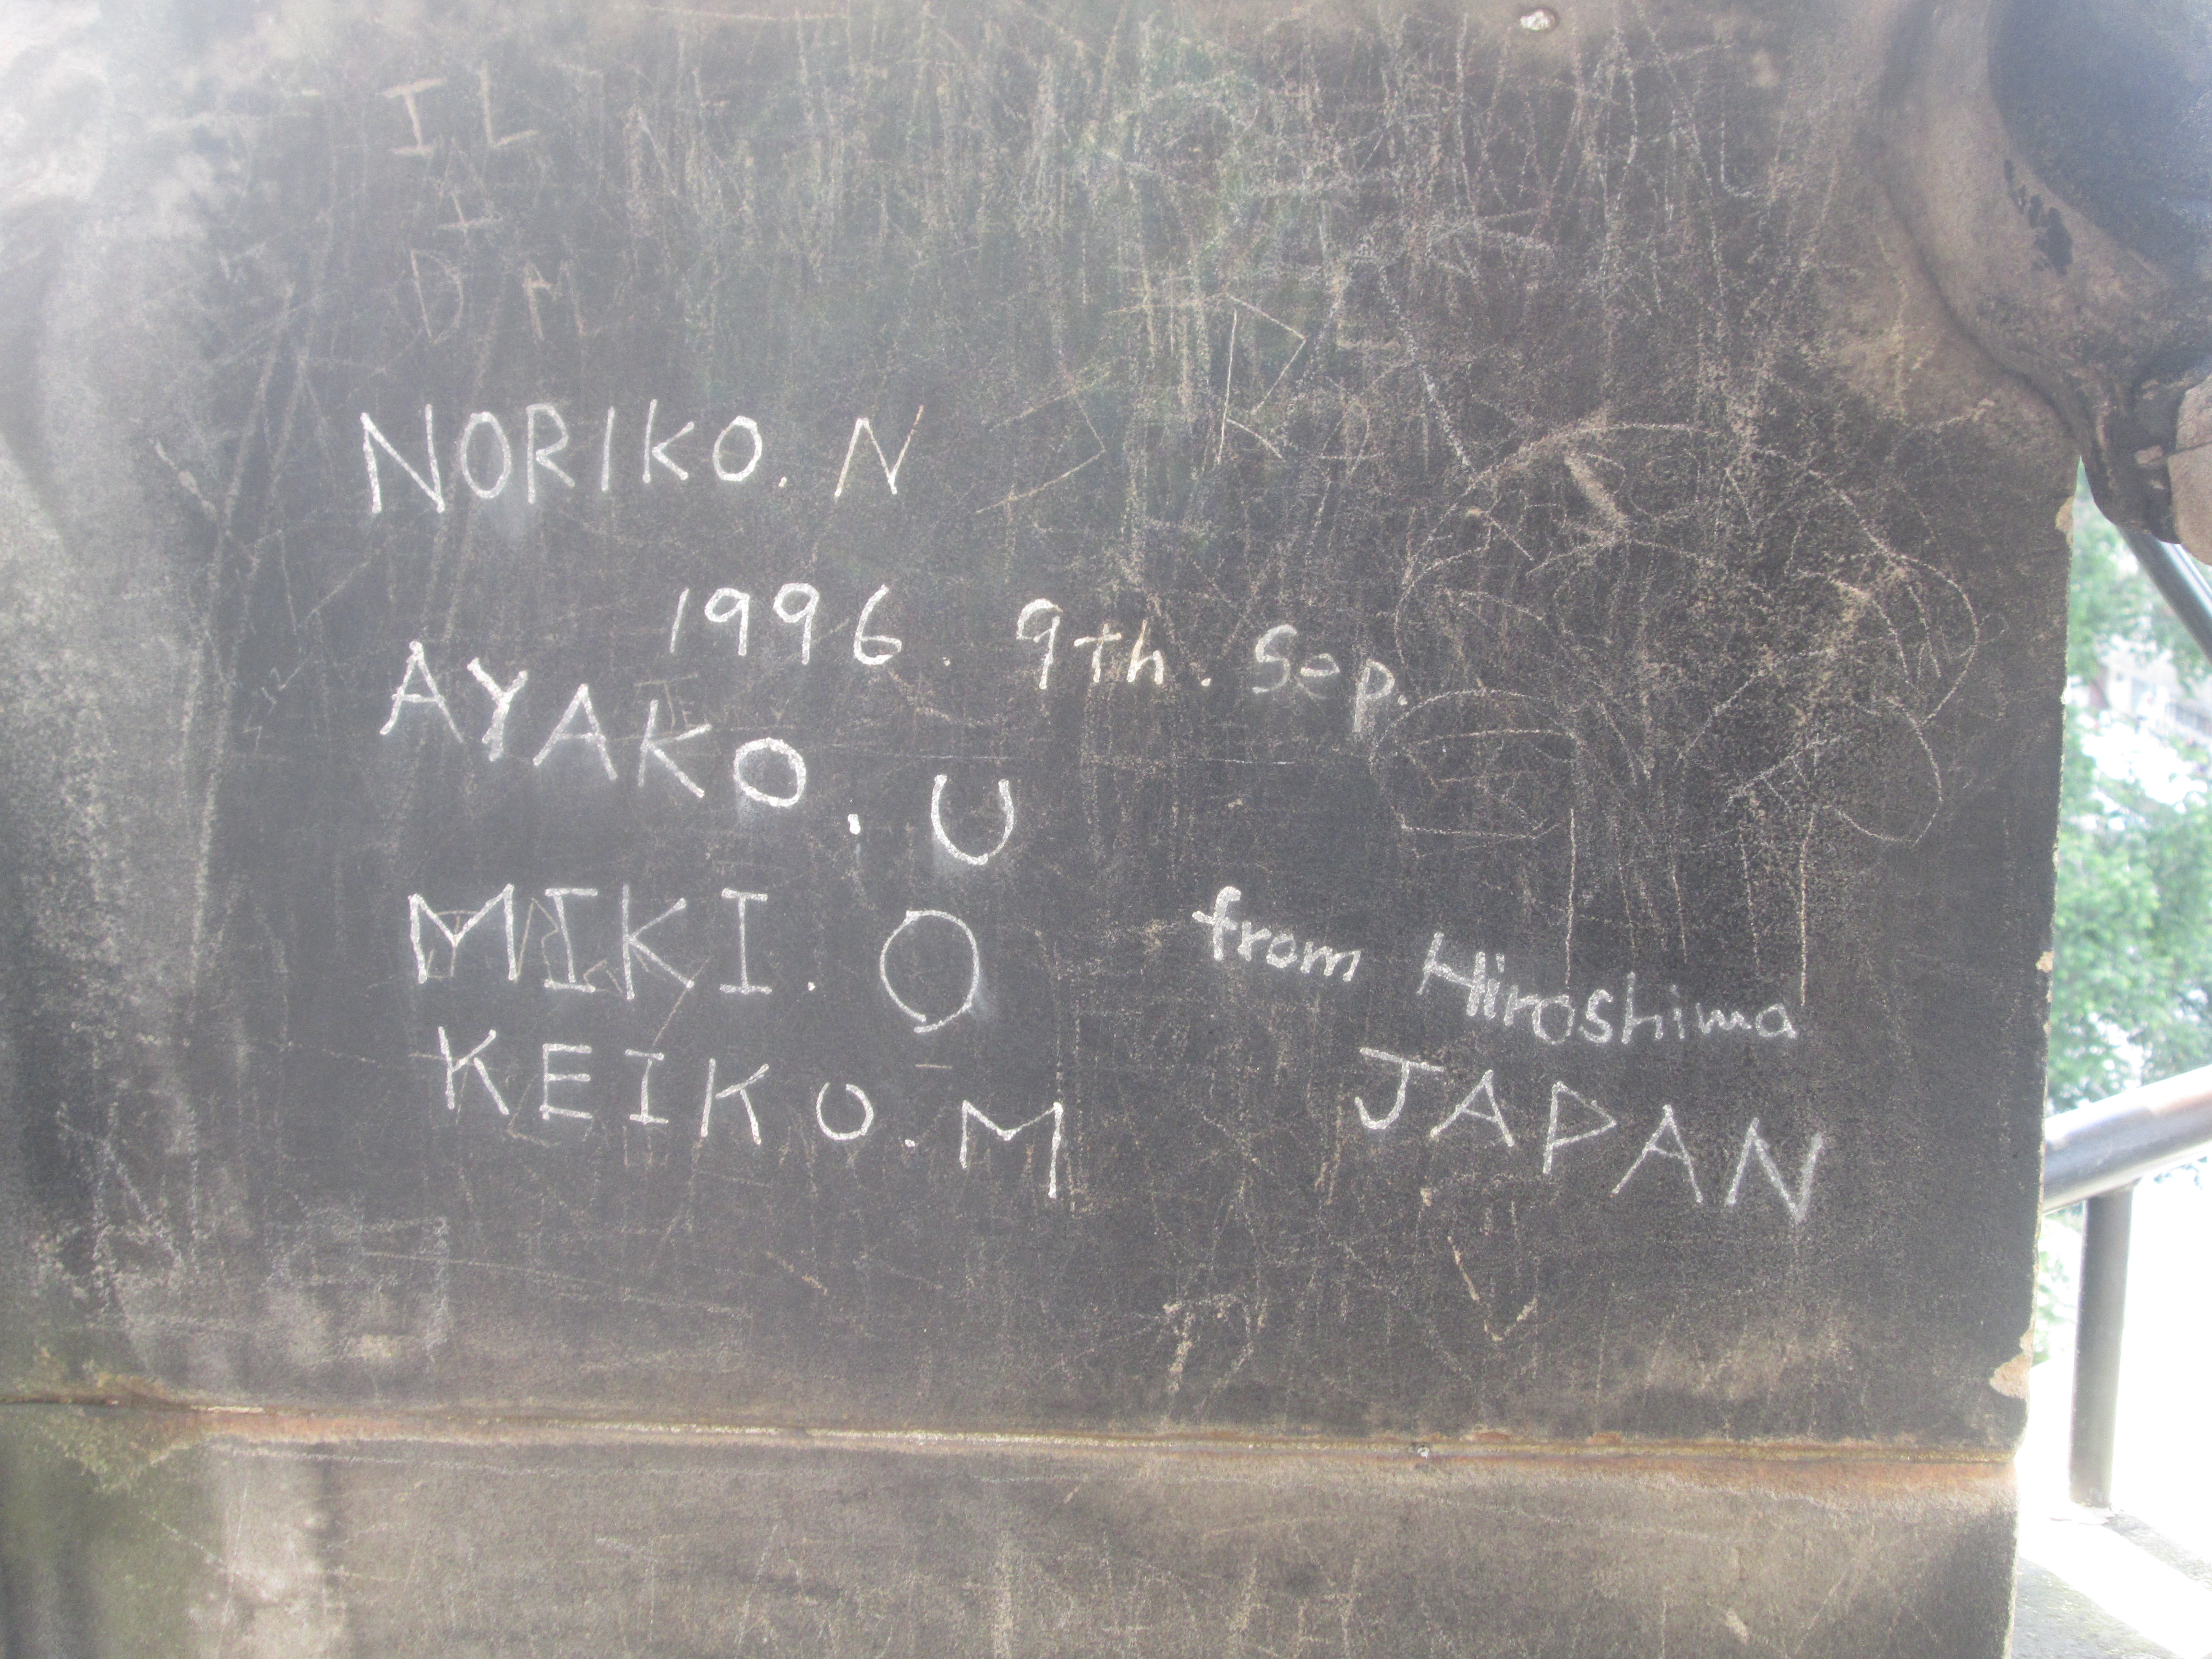 IL
DM
NORIKO. N
1996. 9th. Sep.
AYAKO. U
MIKI. O
from Hiroshima
KEIKO. M
JAPAN